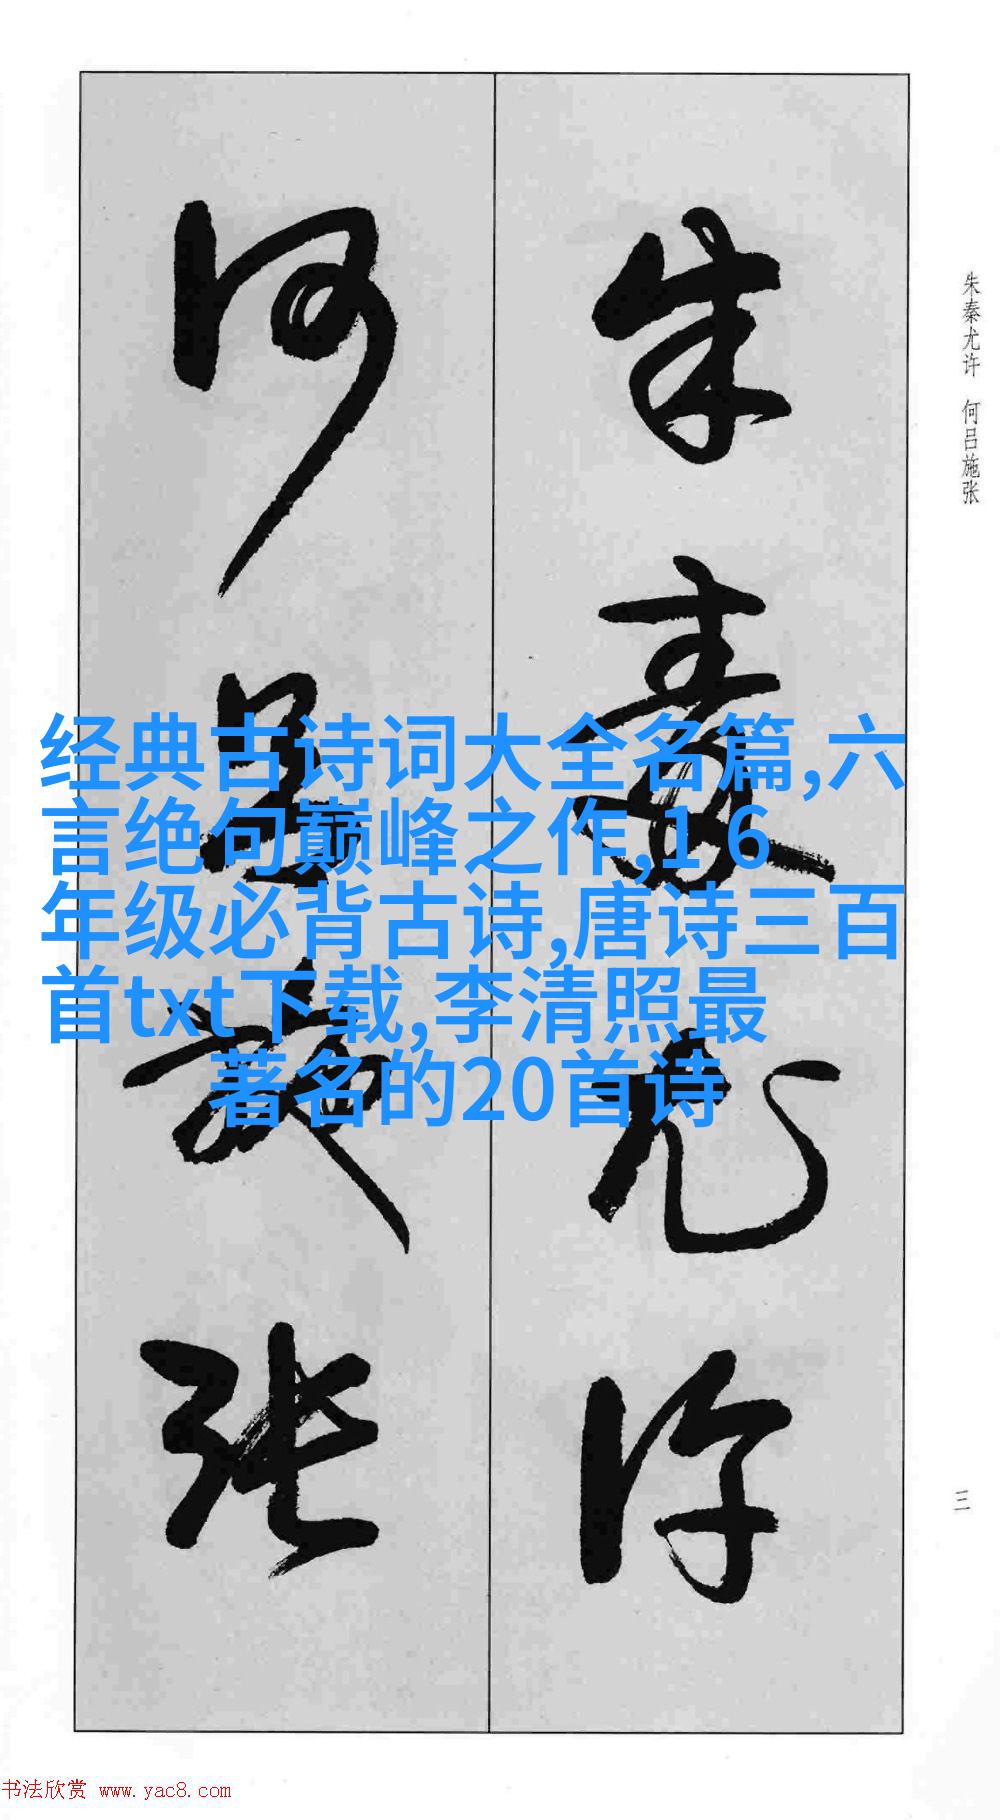 朱秦尤许
何吕施张
朱秦尤许 何吕施张
经典古诗词大全名篇,六
言绝句巅峰之作,1 6
年级必背古诗,唐诗三百
首txt下载,李清照最
著名的20首诗
三
书法欣赏 www.yac8.com